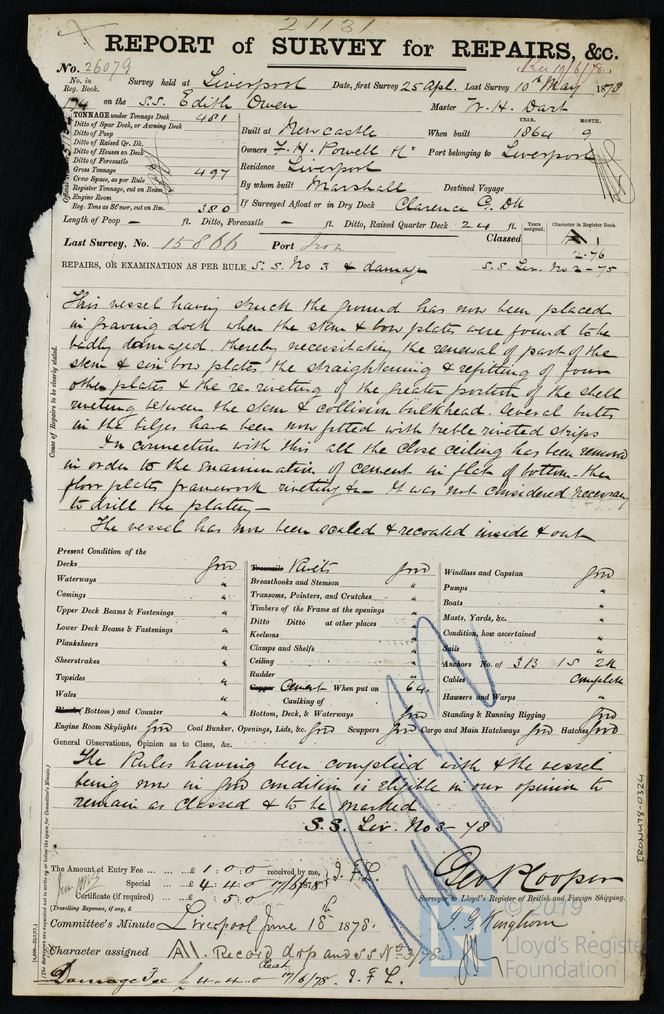 21131
REPORT of SURVEY for REPAIRS, &c.
No. 26079
Rec 11/6/78
No. in Reg. Book. Survey held at Liverpool Date, first Survey 25 Apl. Last Survey 10th May 1878
174 on the S.S. Edith Owen Master W. H. Dart
TONNAGE under Tonnage Deck 481
Ditto of Spar Deck, or Awning Deck
Ditto of Poop
Ditto of Raised Qr. Dk.
Ditto of Houses on Deck
Ditto of Forecastle
Gross Tonnage 497
Crew Space, as per Rule
Register Tonnage, cut on Beam
Engine Room
Reg. Tons as St'mer, cut on Bm. 380
Built at Newcastle When built YEAR. 1864 MONTH. 9
Owners F. H. Powell & Co Port belonging to Liverpool
Residence Liverpool
By whom built Marshall Destined Voyage
If Surveyed Afloat or in Dry Dock Clarence G. Dk
Length of Poop — ft. Ditto, Forecastle — ft. Ditto, Raised Quarter Deck 24 ft.
Years assigned. Character in Register Book.
Last Survey, No. 15866 Port Iron Classed A 1
2.76
REPAIRS, OR EXAMINATION AS PER RULE S.S. No 3 & damage S.S. Liv. No 2-75
Cause of Repairs to be clearly stated.
This vessel having struck the ground has now been placed
in graving dock when the stem & bow plates were found to be
badly damaged thereby necessitating the renewal of part of the
stem & six bow plates, the straightening & refitting of four
other plates & the re-riveting of the greater portion of the shell
riveting between the stem & collision bulkhead. Several butts
in the bilges have been now fitted with treble riveted strips
In connection with this all the close ceiling has been removed
in order to the examination of cement in flat of bottom, the
floor plates framework riveting &c— It was not considered necessary
to drill the plating—
The vessel has now been scaled & recoated inside & out
Present Condition of the
Decks Good
Waterways "
Comings "
Upper Deck Beams & Fastenings "
Lower Deck Beams & Fastenings "
Planksheers "
Sheerstrakes "
Topsides "
Wales "
(Bottom) and Counter "
Treenails Rivets Good
Breasthooks and Stemson "
Transoms, Pointers, and Crutches "
Timbers of the Frame at the openings "
Ditto Ditto at other places "
Keelsons "
Clamps and Shelfs "
Ceiling "
Rudder "
Copper Cement When put on 64.
Caulking of
Bottom, Deck, & Waterways Good
Windlass and Capstan Good
Pumps "
Boats "
Masts, Yards, &c. "
Condition, how ascertained "
Sails "
Anchors No. of 3B 1S 2K
Cables Complete
Hawsers and Warps "
Standing & Running Rigging Good
Engine Room Skylights Good Coal Bunker, Openings, Lids, &c. Good Scuppers Good Cargo and Main Hatchways Good Hatches Good
General Observations, Opinion as to Class, &c.
The Rules having been complied with & the vessel
being now in good condition is eligible in our opinion to
remain as classed & to be marked
S.S. Liv. No 3-78
The Amount of Entry Fee £ 1 : 0 : 0 received by me, J. F. L.
Special £ 4 : 4 : 0 7/6/78
Certificate (if required) £ : 5 : 0
(Travelling Expenses, if any, £
Geo R Cooper
Surveyor to Lloyd's Register of British and Foreign Shipping.
J. G. Kinghorn
Committee's Minute Liverpool June 18th 1878.
Character assigned A1. Record drp and SS No 3/78
Damage Fee £4.4.0 7/6/78. J. F. L.
IRON478-0324
© 2019
Lloyd's Register
Foundation